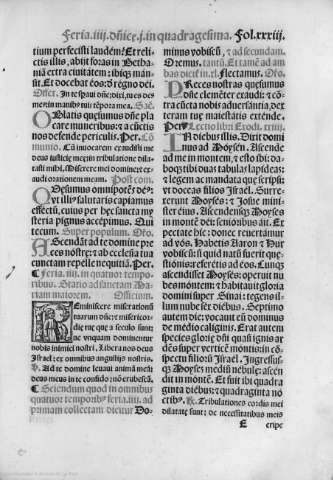 Feria.iiij.dñice.j.in quadragesima. Fol.xxxiij.
tium perfecisti laudem? Et reli-
ctis illis, abijt foras in Betha-
nia extra ciuitatem: ibiqz man-
sit. Et docebat eos: de regno dei.
Offert. In te speraui dñe: dixi, tu es de⁹
meus: in manib⁹ tuis tẽpora mea. Sac.
OBlatis quesumus dñe pla-
care muneribus: ⁊ a cũctis
nos defende periculis. Per. Com.
Cũ inuocarem te exaudisti me
deus iusticie mee: in tribulatione dila-
tasti mihi. Miserere mei domine: ⁊ ex-
audi orationem meam. Postcom.
QUesumus omnipotẽs de⁹:
vt illi⁹ salutaris capiamus
effectũ, cuius per hec sancta my-
steria pignus accepimus. Qui
tecum. Super populum. Oro.
AScendãt ad te domine pre-
ces nostre: ⁊ ab ecclesia tua
cunctam repelle nequitiã. Per.
¶ Feria.iiij.in quatuor tempo-
ribus. Statio ad sanctam Ma-
riam maiorem. Officium.
REminiscere miserationũ
tuarum dñe: ⁊ misericor-
die tue que a seculo sunt:
ne vnquam dominentur
nobis inimici nostri. Libera nos deus
Israel: ex omnibus angustijs nostris.
Ad te domine leuaui animã meã:
deus meus in te confido: nõ erubescã.
¶ Sciendum quod in omnibus
quatuor temporib⁹ feria.iiij. ad
primam collectam dicitur Do-
minus vobiscũ, ⁊ ad secundam.
Oremus. tantũ. Et tamẽ ad am-
bas dicit in rl. Flectamus. Oro.
PReces nostras quesumus
dñe clementer exaudi: ⁊ cõ-
tra cuncta nobis aduersantia, dex-
teram tue maiestatis extende.
Per. Lectio libri Exodi. xxiiij.
IN diebus illis. Dixit domi-
nus ad Moysen. Ascende
ad me in montem, ⁊ esto ibi: da-
boqz tibi duas tabulas lapideas:
⁊ legem ac mandata que scripsi:
vt doceas filios Israel. Surre-
xerunt Moyses: ⁊ Josue mini-
ster eius. Ascendensqz Moyses
in montẽ dei: senioribus ait. Ex-
pectate hic: donec reuertamur
ad vos. Habetis Aaron ⁊ Hur
vobiscũ: si quid natũ fuerit que-
stionis: referetis ad eos. Cumqz
ascendisset Moyses: operuit nu-
bes montem: ⁊ habitauit gloria
domini super Sinai: tegens il-
lum nube sex diebus. Septimo
autem die: vocauit eũ dominus
de medio caliginis. Erat autem
species glorie dñi quasi ignis ar-
dẽs super verticẽ montis: in cõ-
spectu filiorũ Israel. Ingressus-
qz Moyses mediũ nebule: ascen-
dit in montẽ. Et fuit ibi quadra-
ginta diebus: ⁊ quadraginta no-
ctib⁹. Tribulationes cordis mei
dilatate sunt: de necessitatibus meis
E eripe